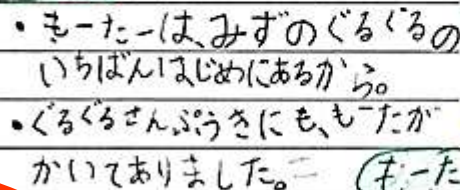 ・もーたーは、みずのぐるぐるの
いちばんはじめにあるから。
・ぐるぐるさんぷうきにも、もーたが
かいてありました。
もーた